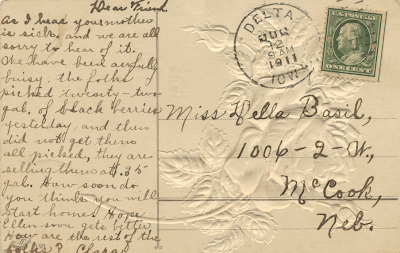 Dear Friend.
As I hear your mother
is sick, and we are all
sorry to hear of it.
We have been awfully
busy, the folks
picked twenty-two
gal. of black berries
yesterday and then
did not get them
all picked, they are
selling them at $.35
gal. How soon do
you think you will
start home. Hope
Ellen soon gets better
How are the rest of the
folks? Clara
DELTA
12
9 AM
1911
IOWA
U.S. POSTAGE
ONE CENT
Miss Della Basil,
1006-2-W.,
McCook,
Neb.